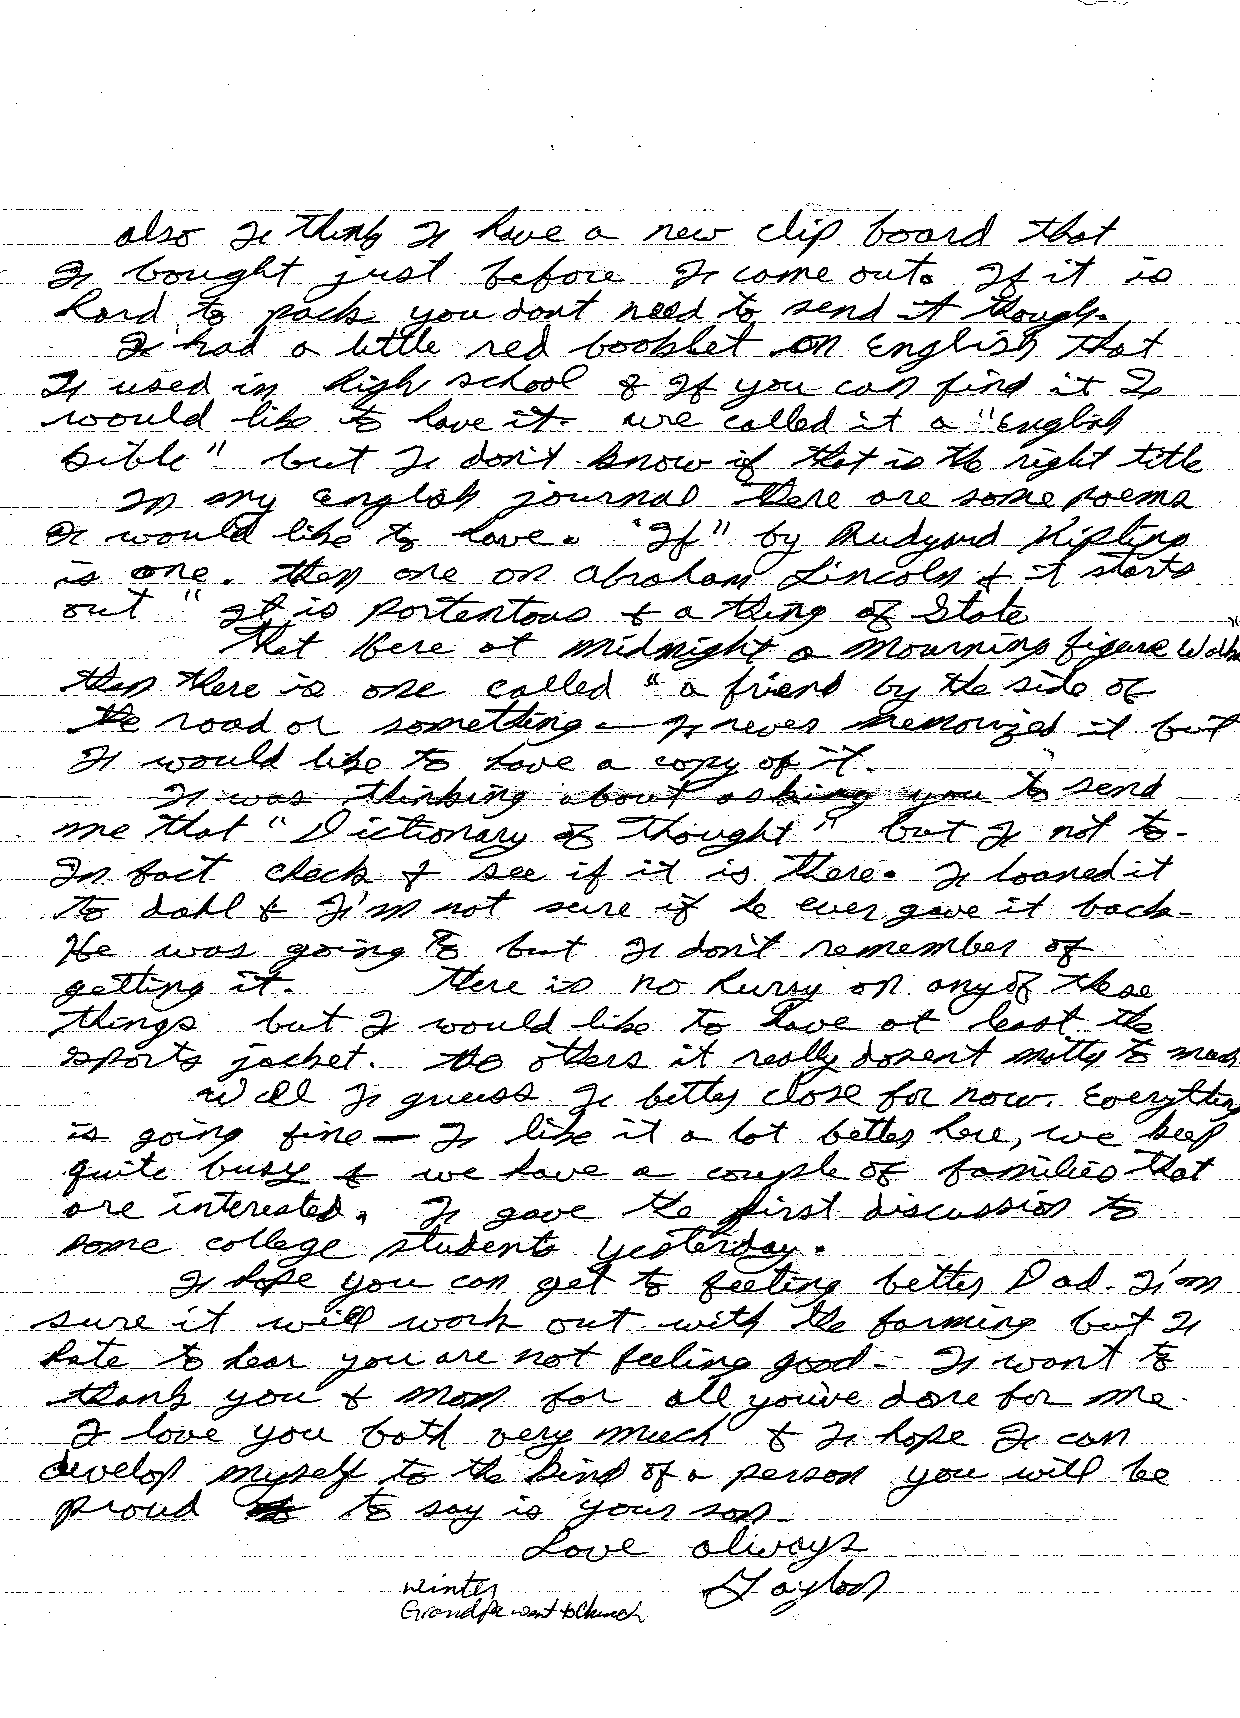 also I think I have a new clip board that
I bought just before I come out. If it is
hard to pack you dont need to send it though.
I had a little red booklet on English that
I used in high school & If you can find it I
would like to have it. we called it a "English
Bible" but I don't know if that is the right title
In my english journal there are some poems
I would like to have. "If" by Rudyard Kipling
is one. then one on Abraham Lincoln & it starts
out "It is portentous & a thing of State
That Here at midnight a mourning figure Walks"
then there is one called "a friend by the side of
the road or something — I never memorized it but
I would like to have a copy of it.
I was thinking about asking you to send
me that "Dictionary of thought" but I not to.
In fact check & see if it is there. I loaned it
to dahl & I'm not sure if he ever gave it back.
He was going to but I don't remember of
getting it. there is no hurry on any of these
things but I would like to have at least the
sports jacket. the others it really dosent matter to much
Well I guess I better close for now. Everything
is going fine — I like it a lot better here, we keep
quite busy & we have a couple of families that
are interested. I gave the first discussion to
some college students yesterday.
I hope you can get to feeling better Dad. I'm
sure it will work out with the farming but I
hate to hear you are not feeling good. I want to
thank you & mom for all you've done for me.
I love you both very much & I hope I can
develop myself to the kind of a person you will be
proud to say is your son.
Love always
Taylor
winter
Grandpa went to Church